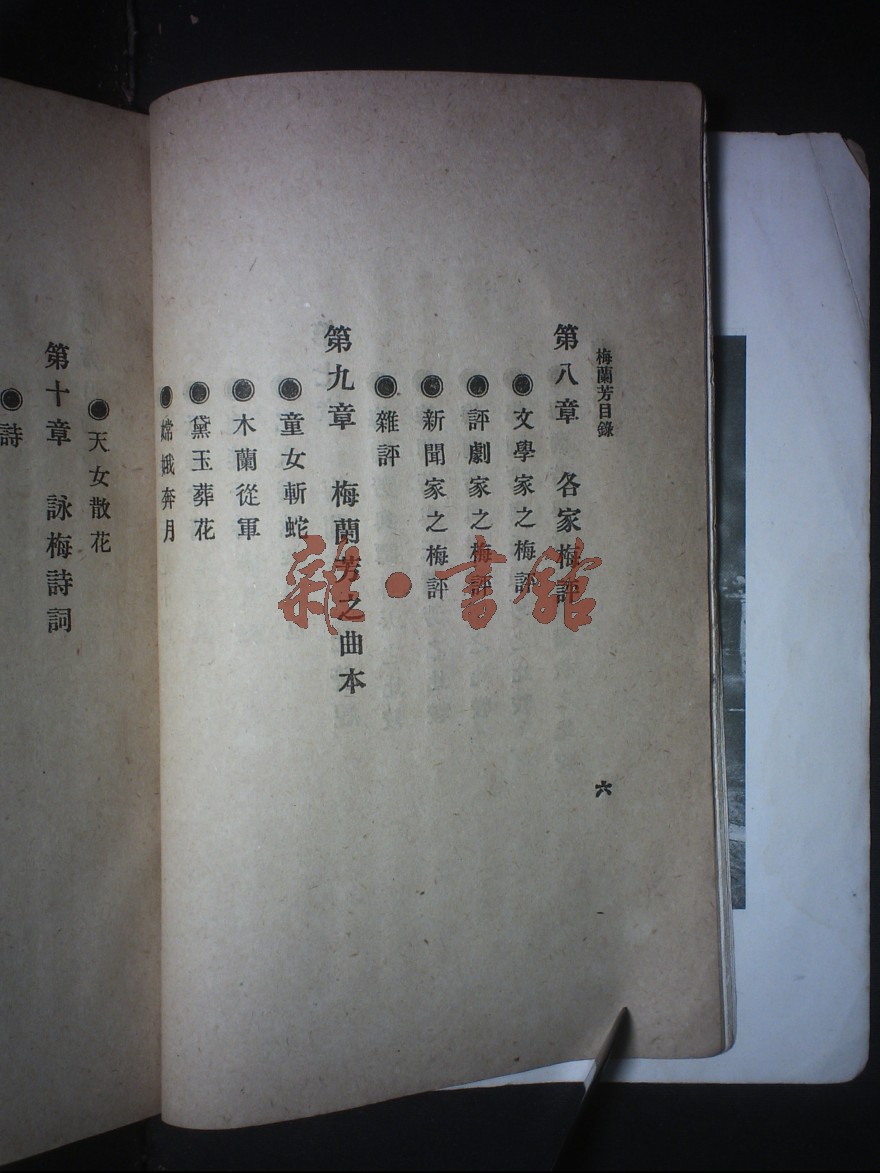 梅蘭芳目錄
第八章 各家梅評
◉文學家之梅評
◉評劇家之梅評
◉新聞家之梅評
◉雜評
第九章 梅蘭芳之曲本
◉童女斬蛇
◉木蘭從軍
◉黛玉葬花
◉嫦娥奔月
六
◉天女散花
第十章 詠梅詩詞
◉詩
雜·書館